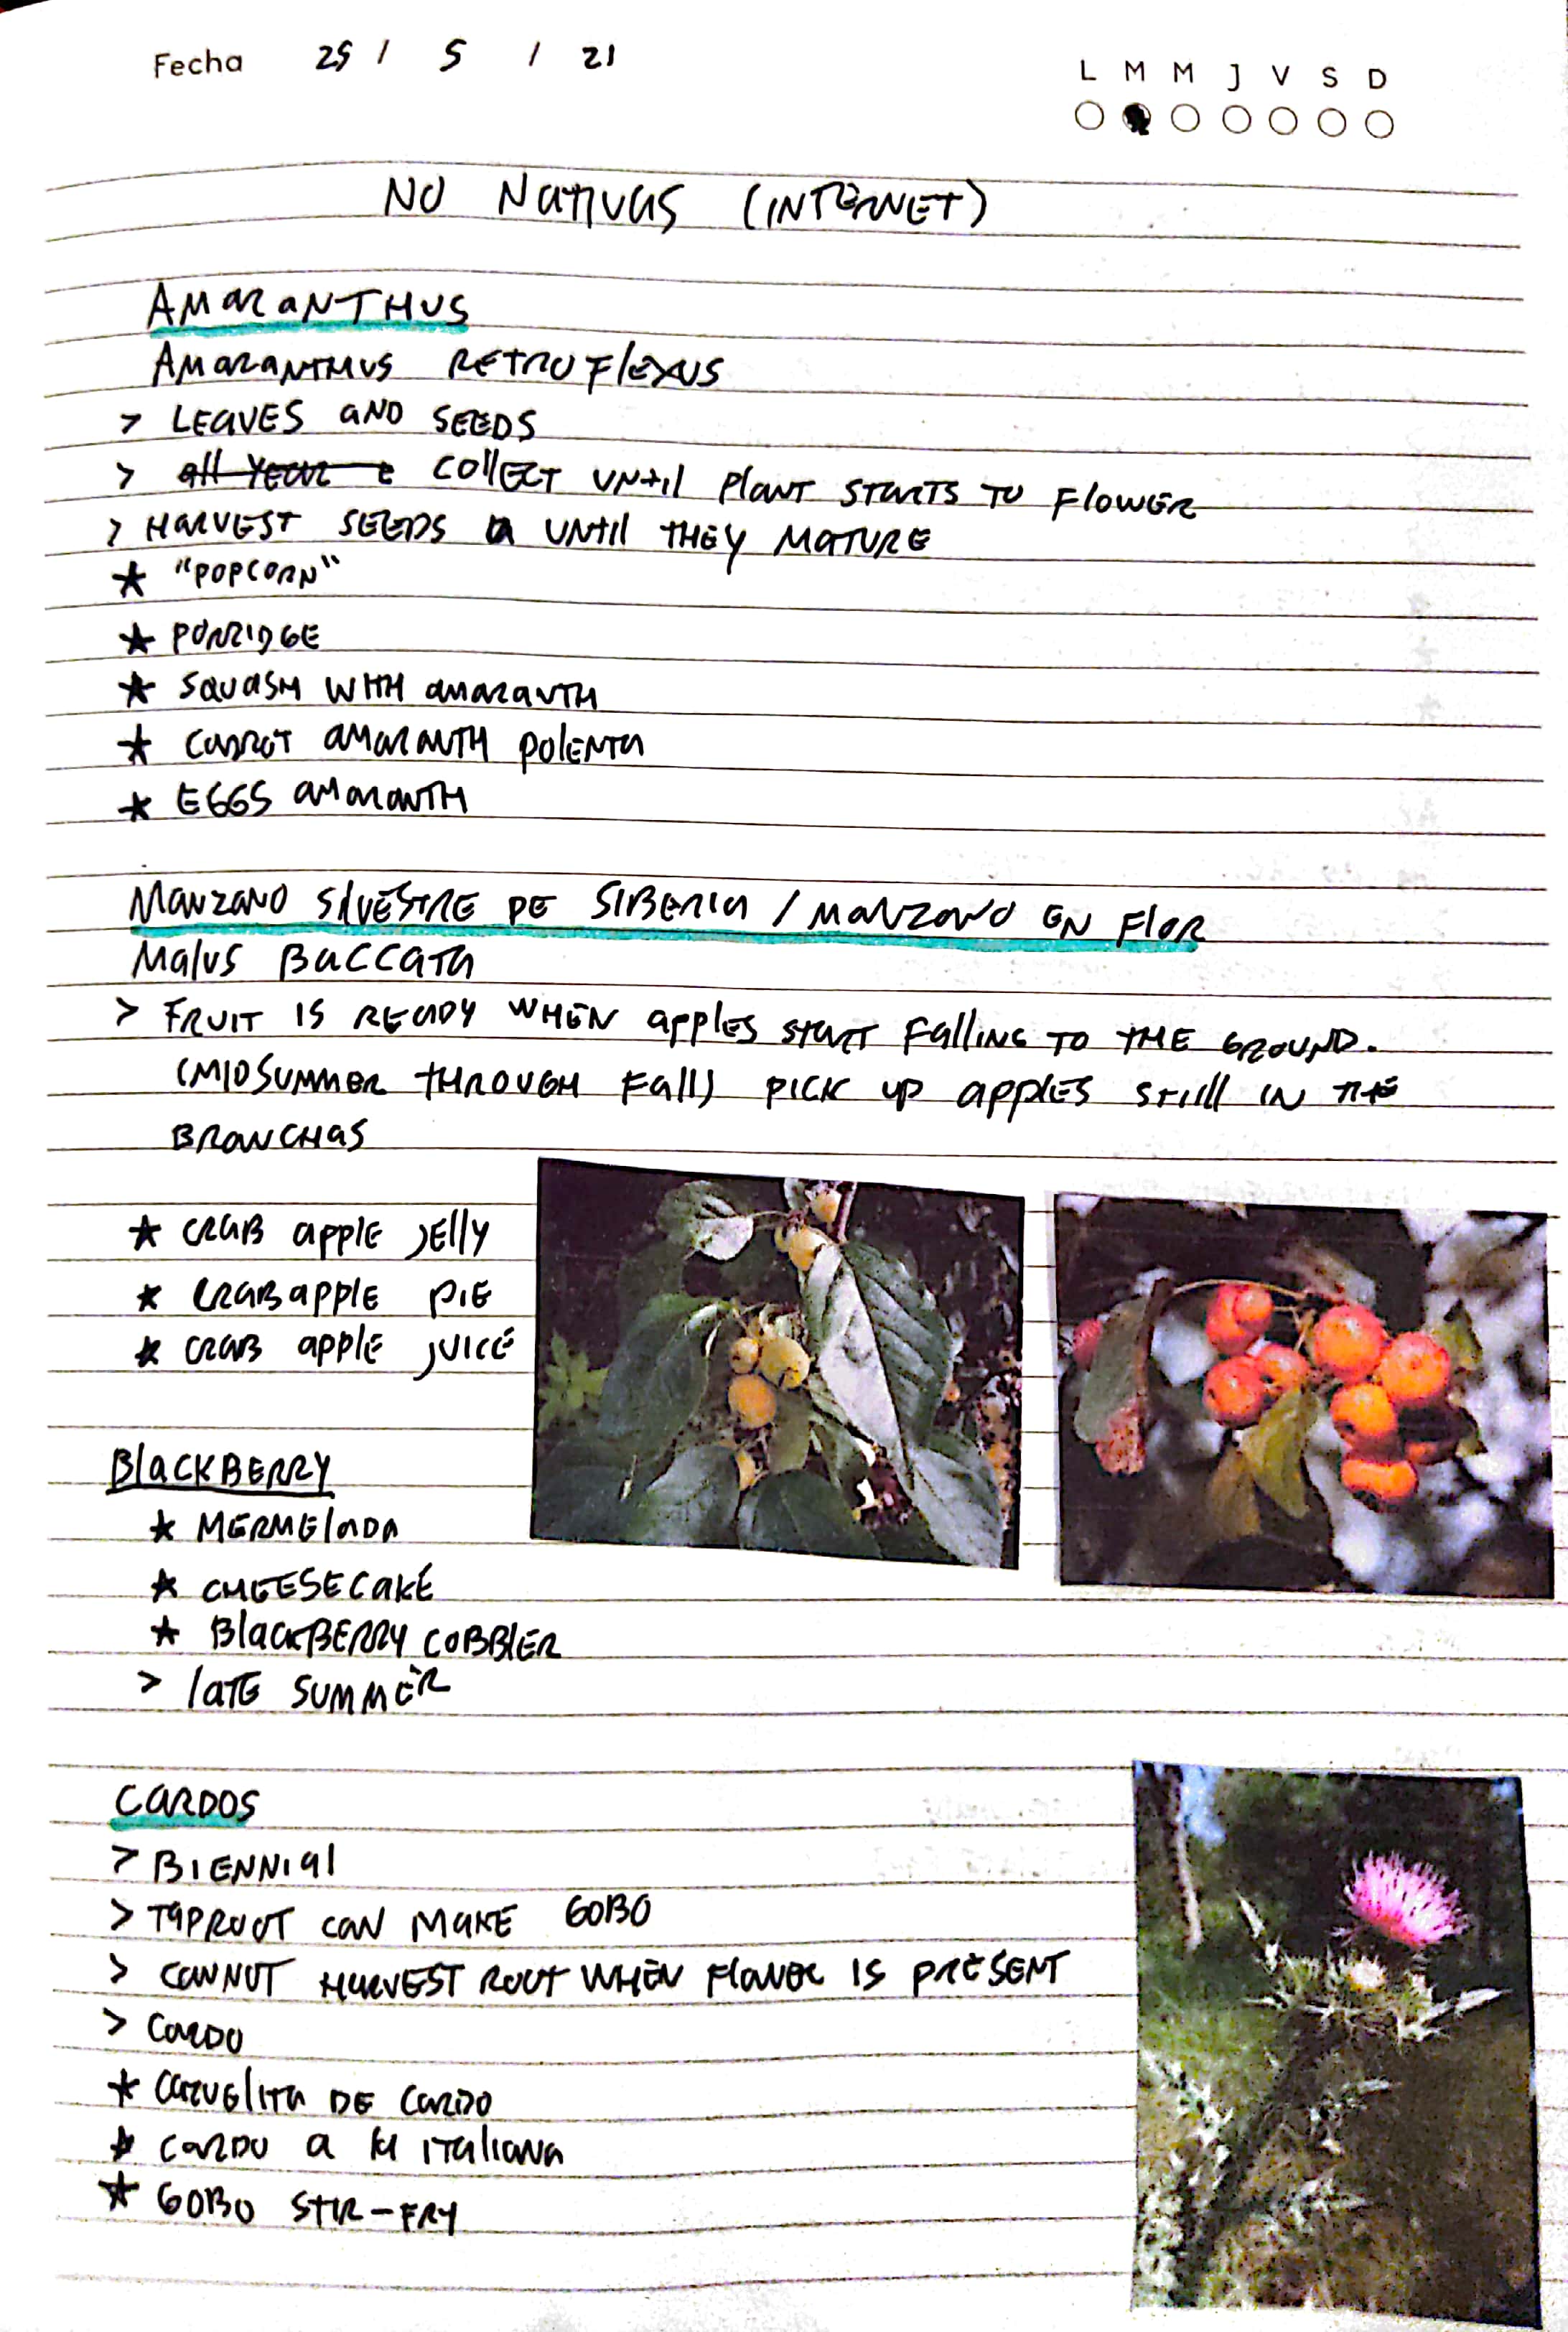 Fecha 25 / 5 / 21
L M M J V S D
NO NATIVAS (INTERNET)
AMARANTHUS
AMARANTHUS RETROFLEXUS
> LEAVES AND SEEDS
> all YEAR e COllECT UNtil PlANT STARTS TO FlOWER
> HARVEST SEEDS a UNTIl THEY MATURE
★ "POPCORN"
★ PORRIDGE
★ SQUASH WITH AMARANTH
★ CARROT AMARANTH POLENTA
★ EGGS AMARANTH
MANZANO SILVESTRE DE SIBERIA / MANZANO EN FLOR
MALUS BACCATA
> FRUIT IS READY WHEN APPLES START FALLING TO THE GROUND.
(MIDSUMMER THROUGH FALL) PICK UP APPLES STILL IN THE
BRANCHAS
★ CRAB APPLE JELLY
★ CRABAPPLE PIE
★ CRAB APPLE JUICE
BLACKBERRY
★ MERMELADA
★ CHEESECAKE
★ BLACKBERRY COBBLER
> LATE SUMMER
CARDOS
> BIENNIAL
> TAPROOT CAN MAKE GOBO
> CANNOT HARVEST ROOT WHEN FLOWER IS PRESENT
> CARDO
★ CAZUELITA DE CARDO
★ CARDO A LA ITALIANA
★ GOBO STIR-FRY